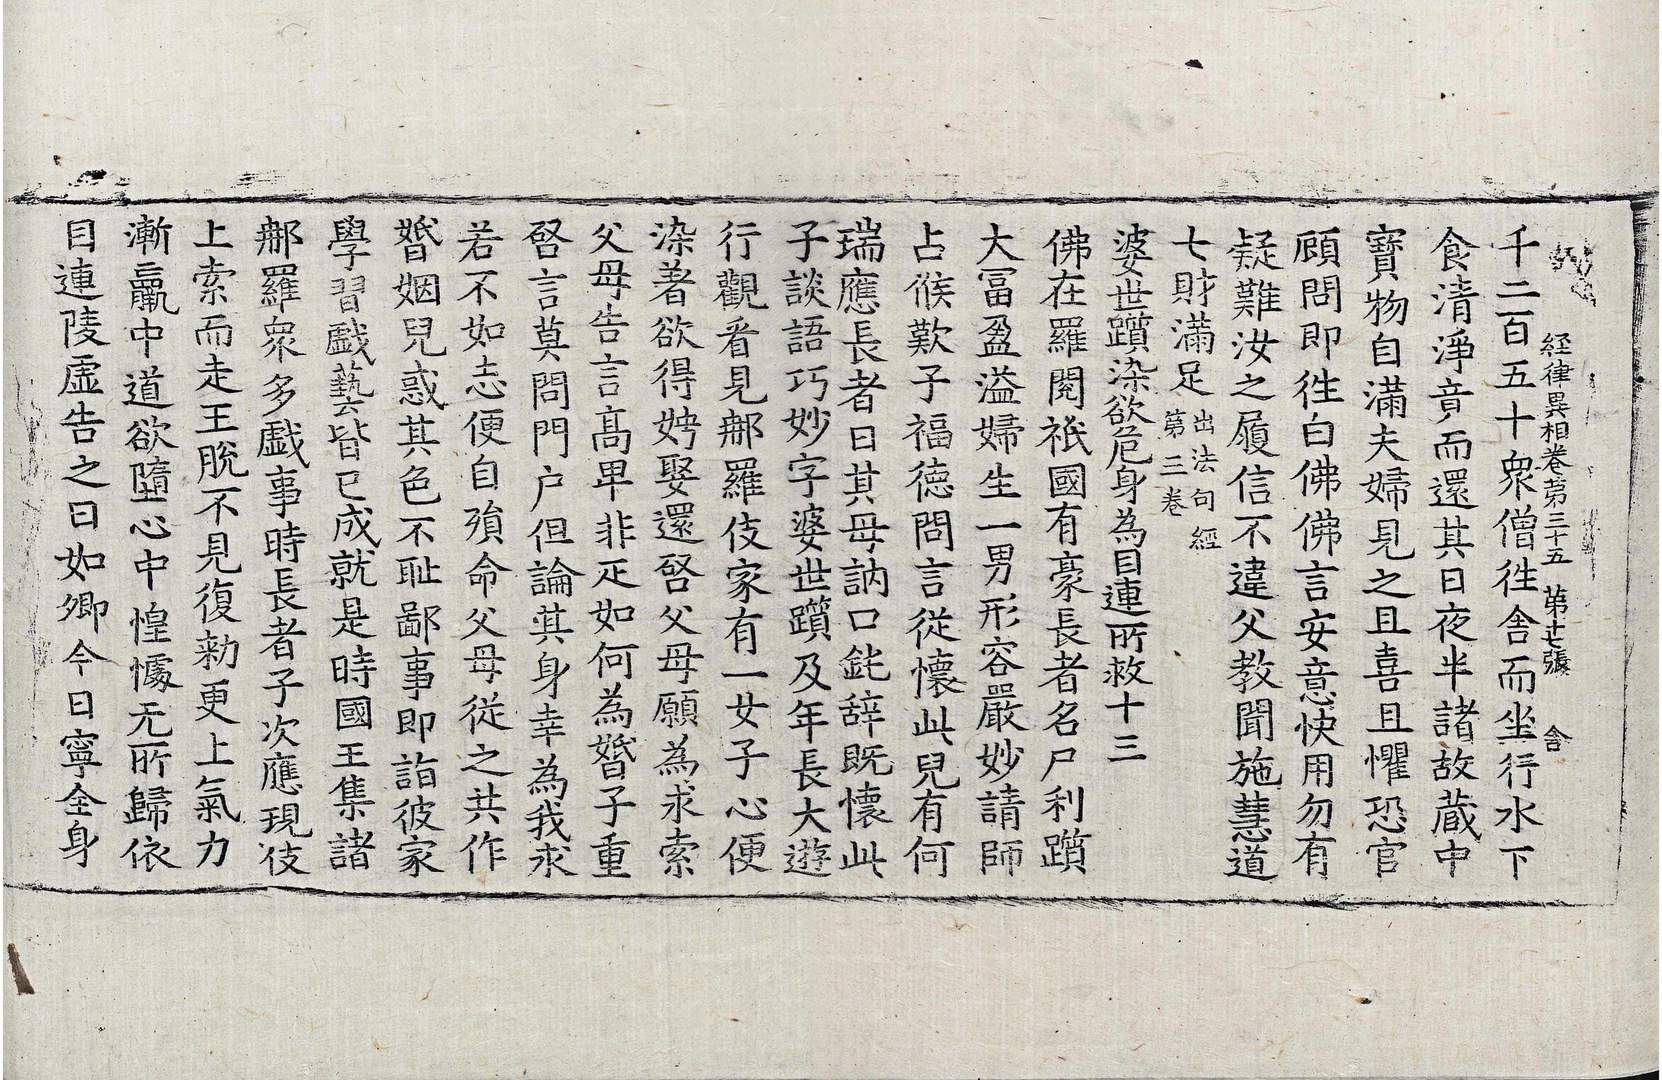 経律異相卷第三十五 第十七張 舍
千二百五十衆僧徃舍而坐行水下
食清淨音而還其日夜半諸故蔵中
寶物自滿夫婦見之且喜且懼恐官
顧問即徃白佛佛言安意快用勿有
疑難汝之履信不違父教聞施慧道
七財滿足出法句經
第三卷
婆世躓染欲危身為目連所救十三
佛在羅閱祇國有豪長者名尸利躓
大冨盈溢婦生一男形容嚴妙請師
占候歎子福徳問言從懷此兒有何
瑞應長者曰其母訥口鈍辞既懷此
子談語巧妙字婆世躓及年長大遊
行觀看見郍羅伎家有一女子心便
染著欲得娉娶還啓父母願為求索
父母告言髙卑非疋如何為婚子重
啓言莫問門户但論其身幸為我求
若不如志便自殞命父母從之共作
婚姻兒惑其色不耻鄙事即詣彼家
學習戯藝皆已成就是時國王集諸
郍羅衆多戯事時長者子次應現伎
上索而走王脫不見復勑更上氣力
漸羸中道欲墮心中惶懅无所歸依
目連陵虛告之曰如卿今日寧全身